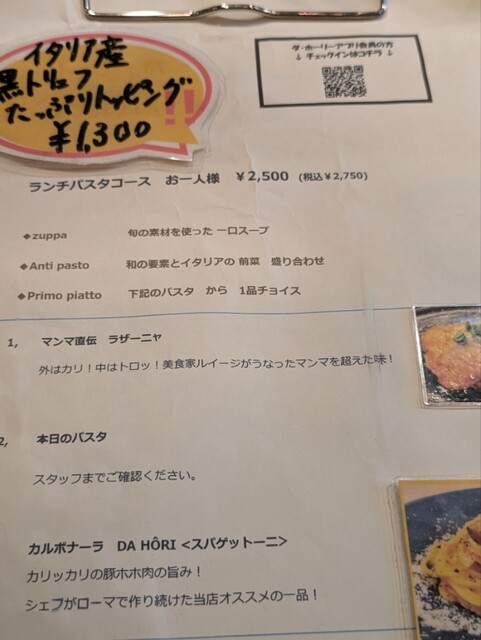 イタリア産
黒トリュフ
たっぷりトッピング
¥1,300!!
ダ・ホーリーアプリ会員の方
↓ チェックインはコチラ ↓
ランチパスタコース お一人様 ¥2,500 (税込¥2,750)
◆zuppa 旬の素材を使った 一口スープ
◆Anti pasto 和の要素とイタリアの 前菜 盛り合わせ
◆Primo piatto 下記のパスタ から 1品チョイス
1, マンマ直伝 ラザーニャ
外はカリ！中はトロッ！美食家ルイージがうなったマンマを超えた味！
2, 本日のパスタ
スタッフまでご確認ください。
カルボナーラ DA HÔRI <スパゲットーニ>
カリッカリの豚ホホ肉の旨み！
シェフがローマで作り続けた当店オススメの一品！